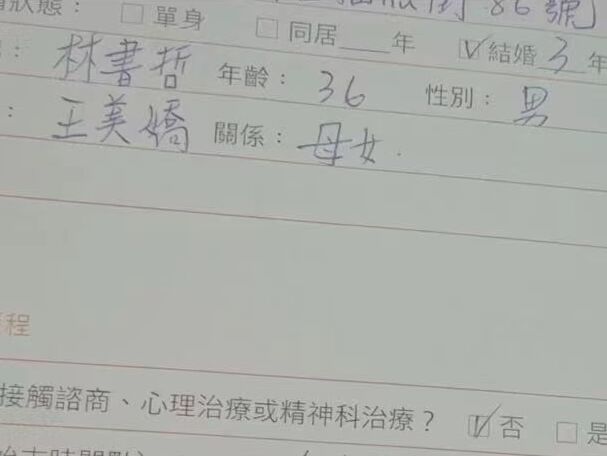 狀態： □ 單身 □ 同居___年 ☑ 結婚 3 年
： 林書哲 年齡： 36 性別： 男
： 王美嬌 關係： 母女.
程
接觸諮商、心理治療或精神科治療？ ☑ 否 □ 是